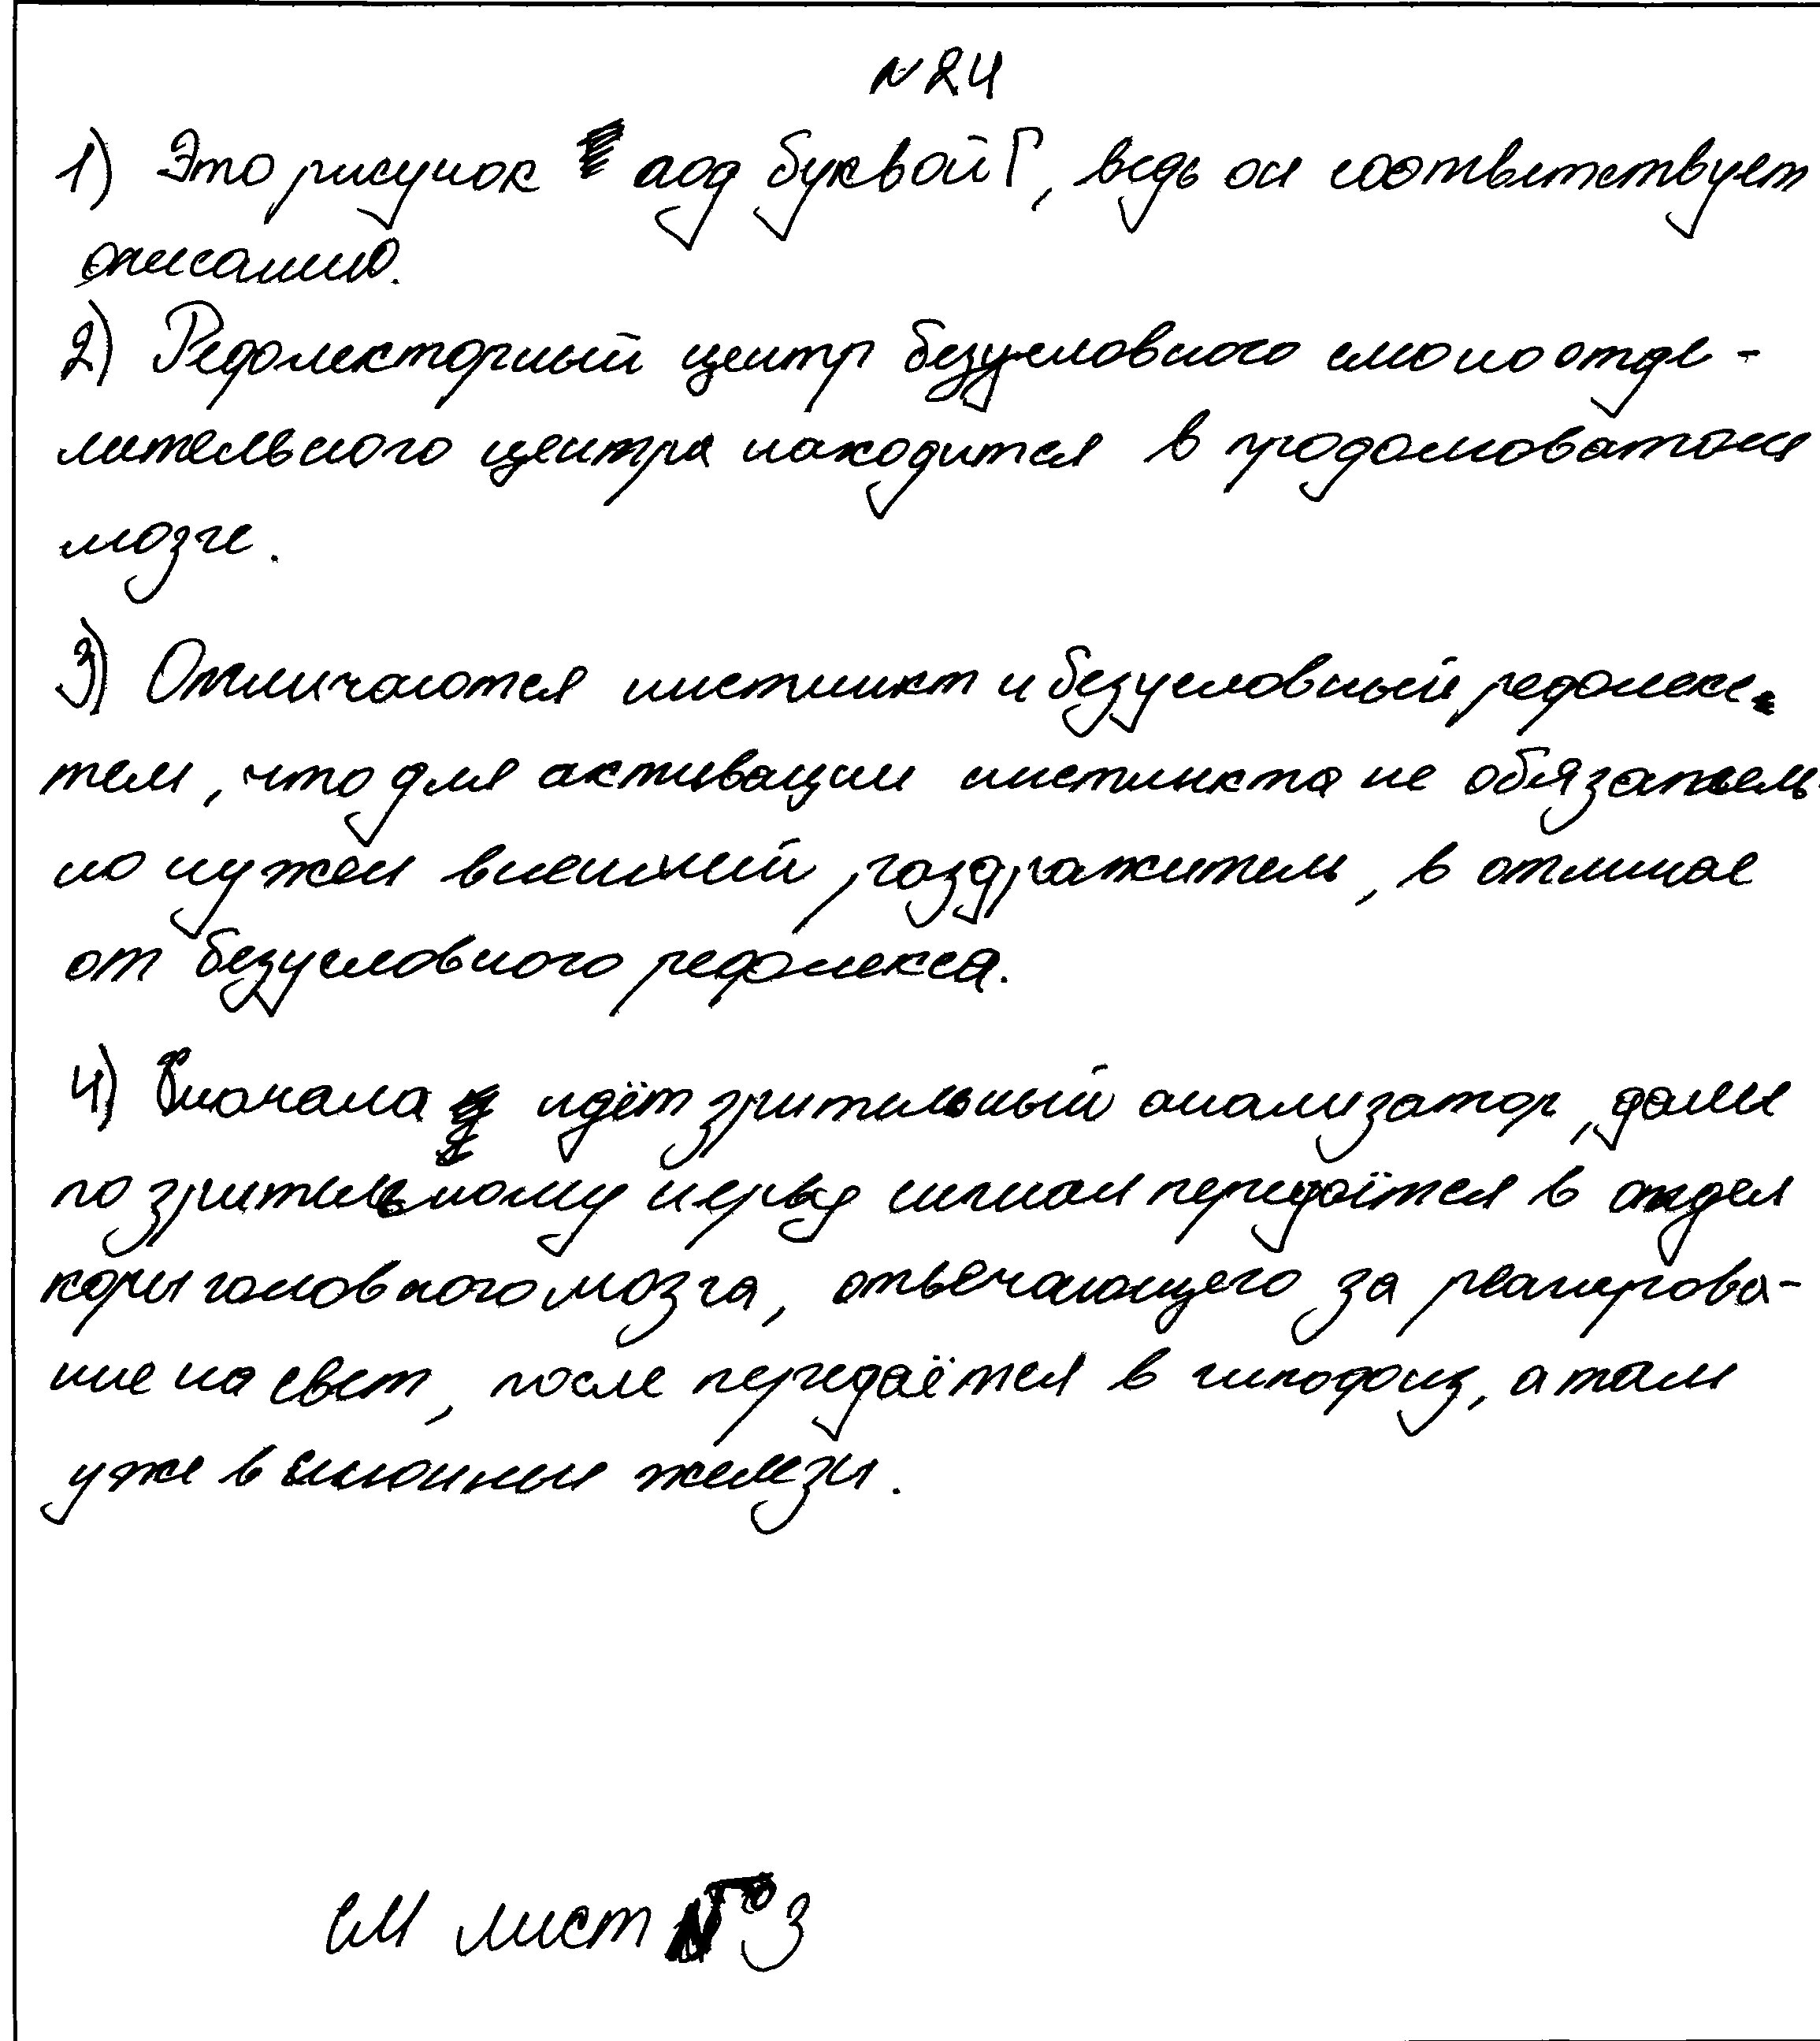 №24
1) Это рисунок под буквой Г, ведь он соответствует
описанию.
2) Рефлекторный центр безусловного слюноотде-
лительного центра находится в продолговатом
мозге.
3) Отличаются инстинкт и безусловный рефлекс
тем, что для активации инстинкта не обязатель-
но нужен внешний раздражитель, в отличае
от безусловного рефлекса.
4) Сначала идёт зрительный анализатор, далее
по зрительному нерву сигнал передаётся в отдел
коры головного мозга, отвечающего за реагирова-
ние на свет, после передаётся в гипофиз, а там
уже в слюнные железы.
См лист №3